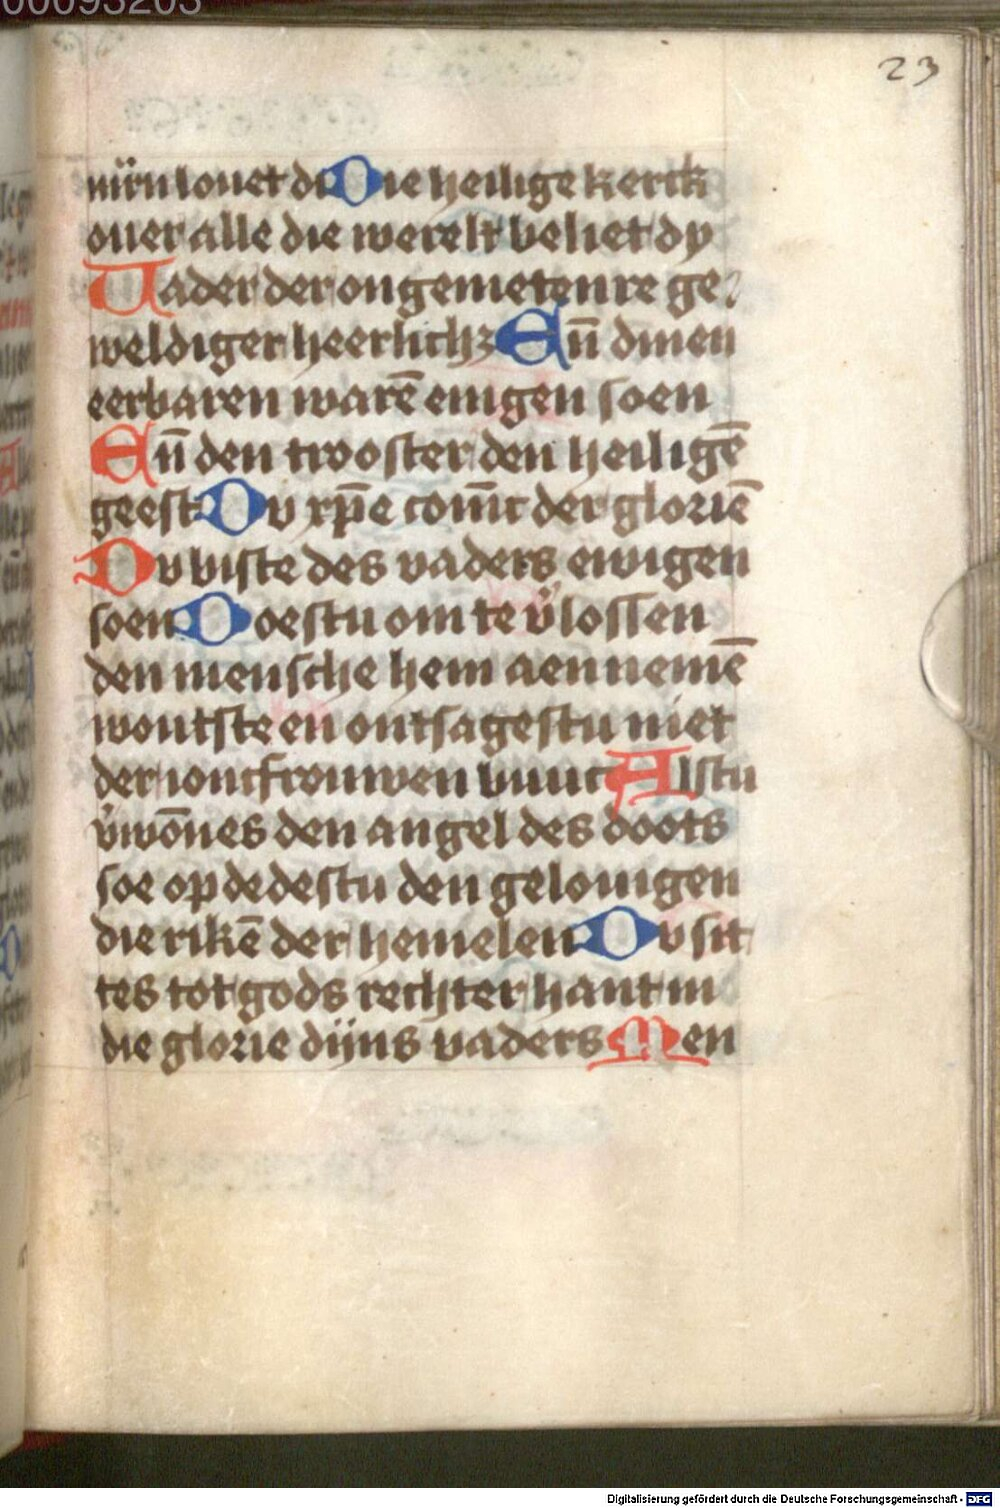 00093203
23
mr̄n louet di Die heilige kerck
ouer alle die werelt beliet dy
Uader der ongemetenre ge
weldiger heerlichz Eñ dinen
eerbaren warē enigen soen
Eñ den trooster den heiligē
geest Du xp̄e coniñc der gloriē
Du biste des vaders ewigen
soen Doestu om te v̾lossen
den mensche hem aennemē
woutste en ontsagestu niet
der ioncfrouwen buuc Alstu
v̾wōnes den angel des doots
soe op dedestu den gelouigen
die rikē der hemelen Du sit
tes tot gods rechter hant in
die glorie dijns vaders Men
Digitalisierung gefördert durch die Deutsche Forschungsgemeinschaft - DFG